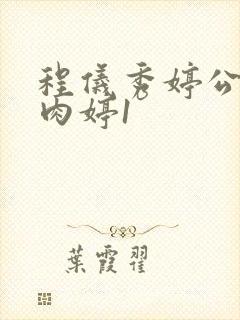 程儀秀婷公
肉婷1
葉霞翟